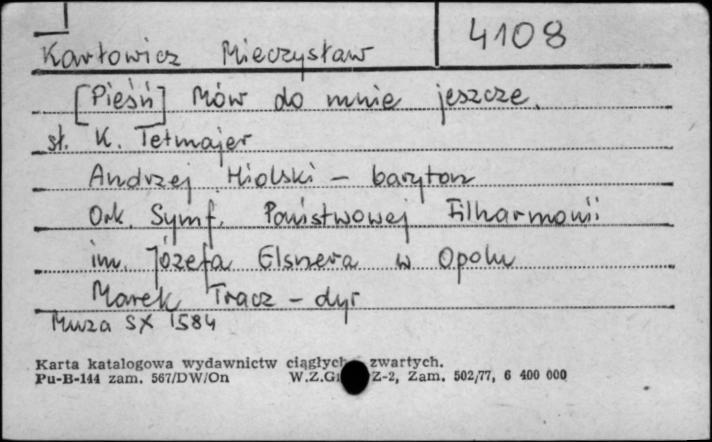 Karłowicz Mieczysław 4108
[Pieśń] Mów do mnie jeszcze.
sł. K. Tetmajer
Andrzej Hiolski – baryton
Ork. Symf. Państwowej Filharmonii
im. Józefa Elsnera w Opolu
Marek Tracz – dyr
Muza SX 1584
Karta katalogowa wydawnictw ciągłych zwartych.
Pu-B-144 zam. 567/DW/On W.Z.G Z-2, Zam. 502/77, 6 400 000